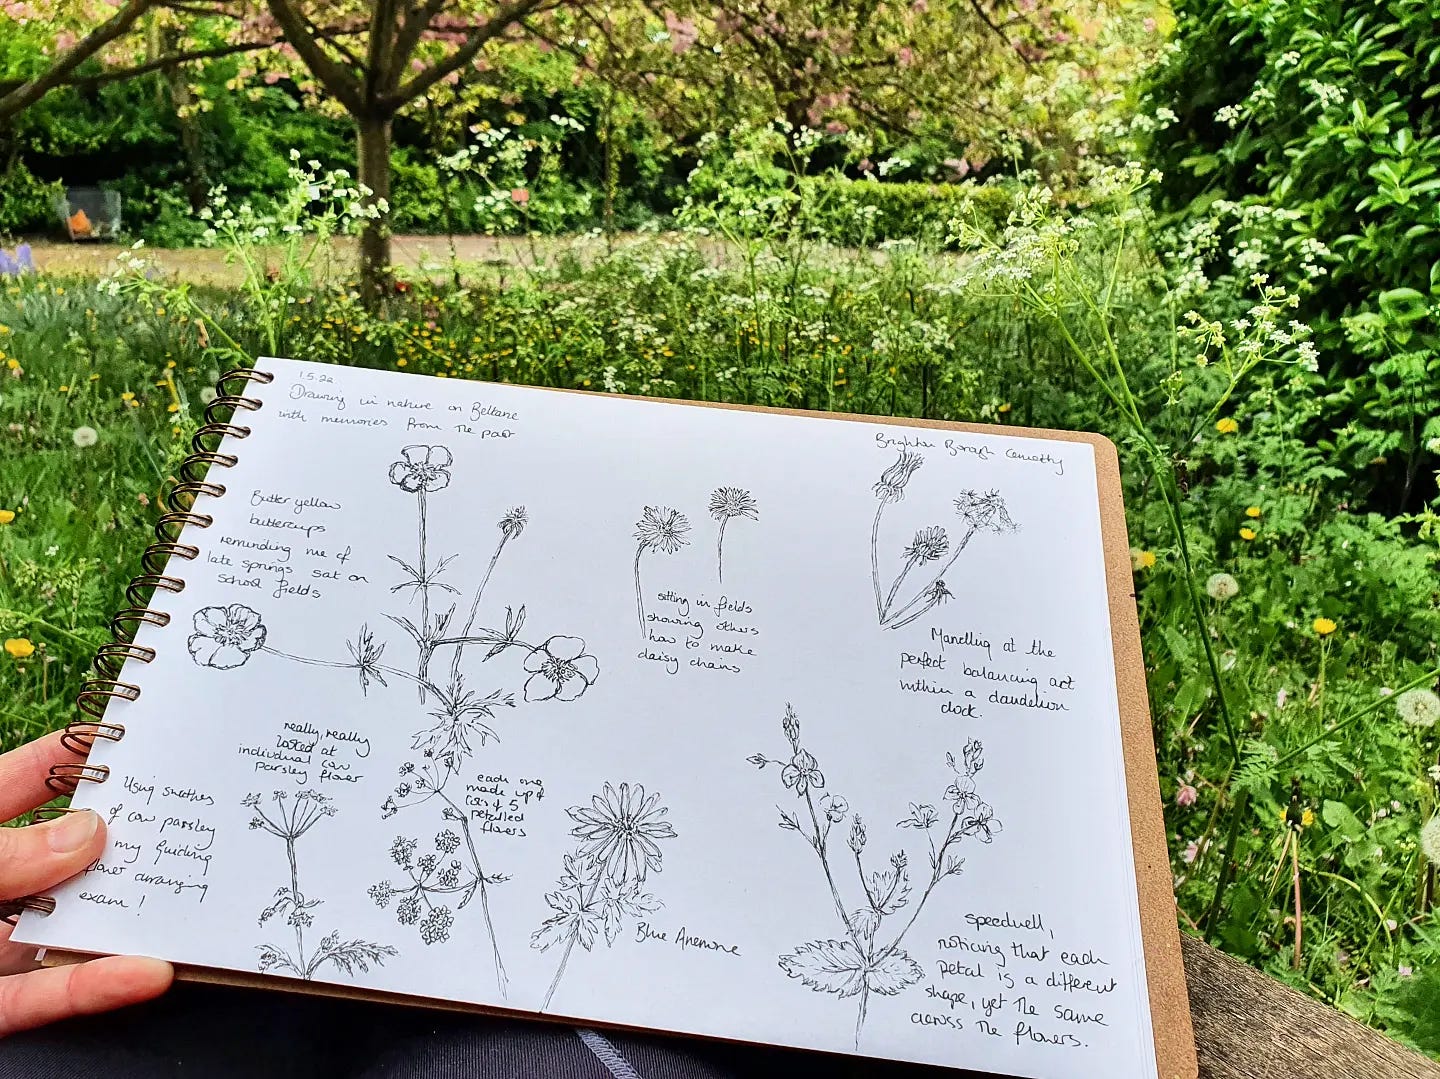 1.5.22
Drawing in nature on Beltane
with memories from the past
Brighton Borough Cemetry
Butter yellow
buttercups
reminding me of
late springs sat on
school fields
sitting in fields
showing others
how to make
daisy chains
Marvelling at the
perfect balancing act
within a dandelion
clock.
really, really
looked at
individual cow
parsley flower
each one
made up of
lots of 5
petalled
flowers
Using swathes
of cow parsley
in my Guiding
flower arranging
exam!
Blue Anemone
Speedwell,
noticing that each
petal is a different
shape, yet the same
across the flowers.